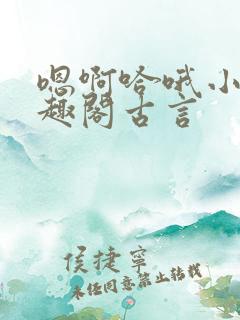 嗯啊哈哦小
趣阁古言
侯捷宁
未经同意禁止转载